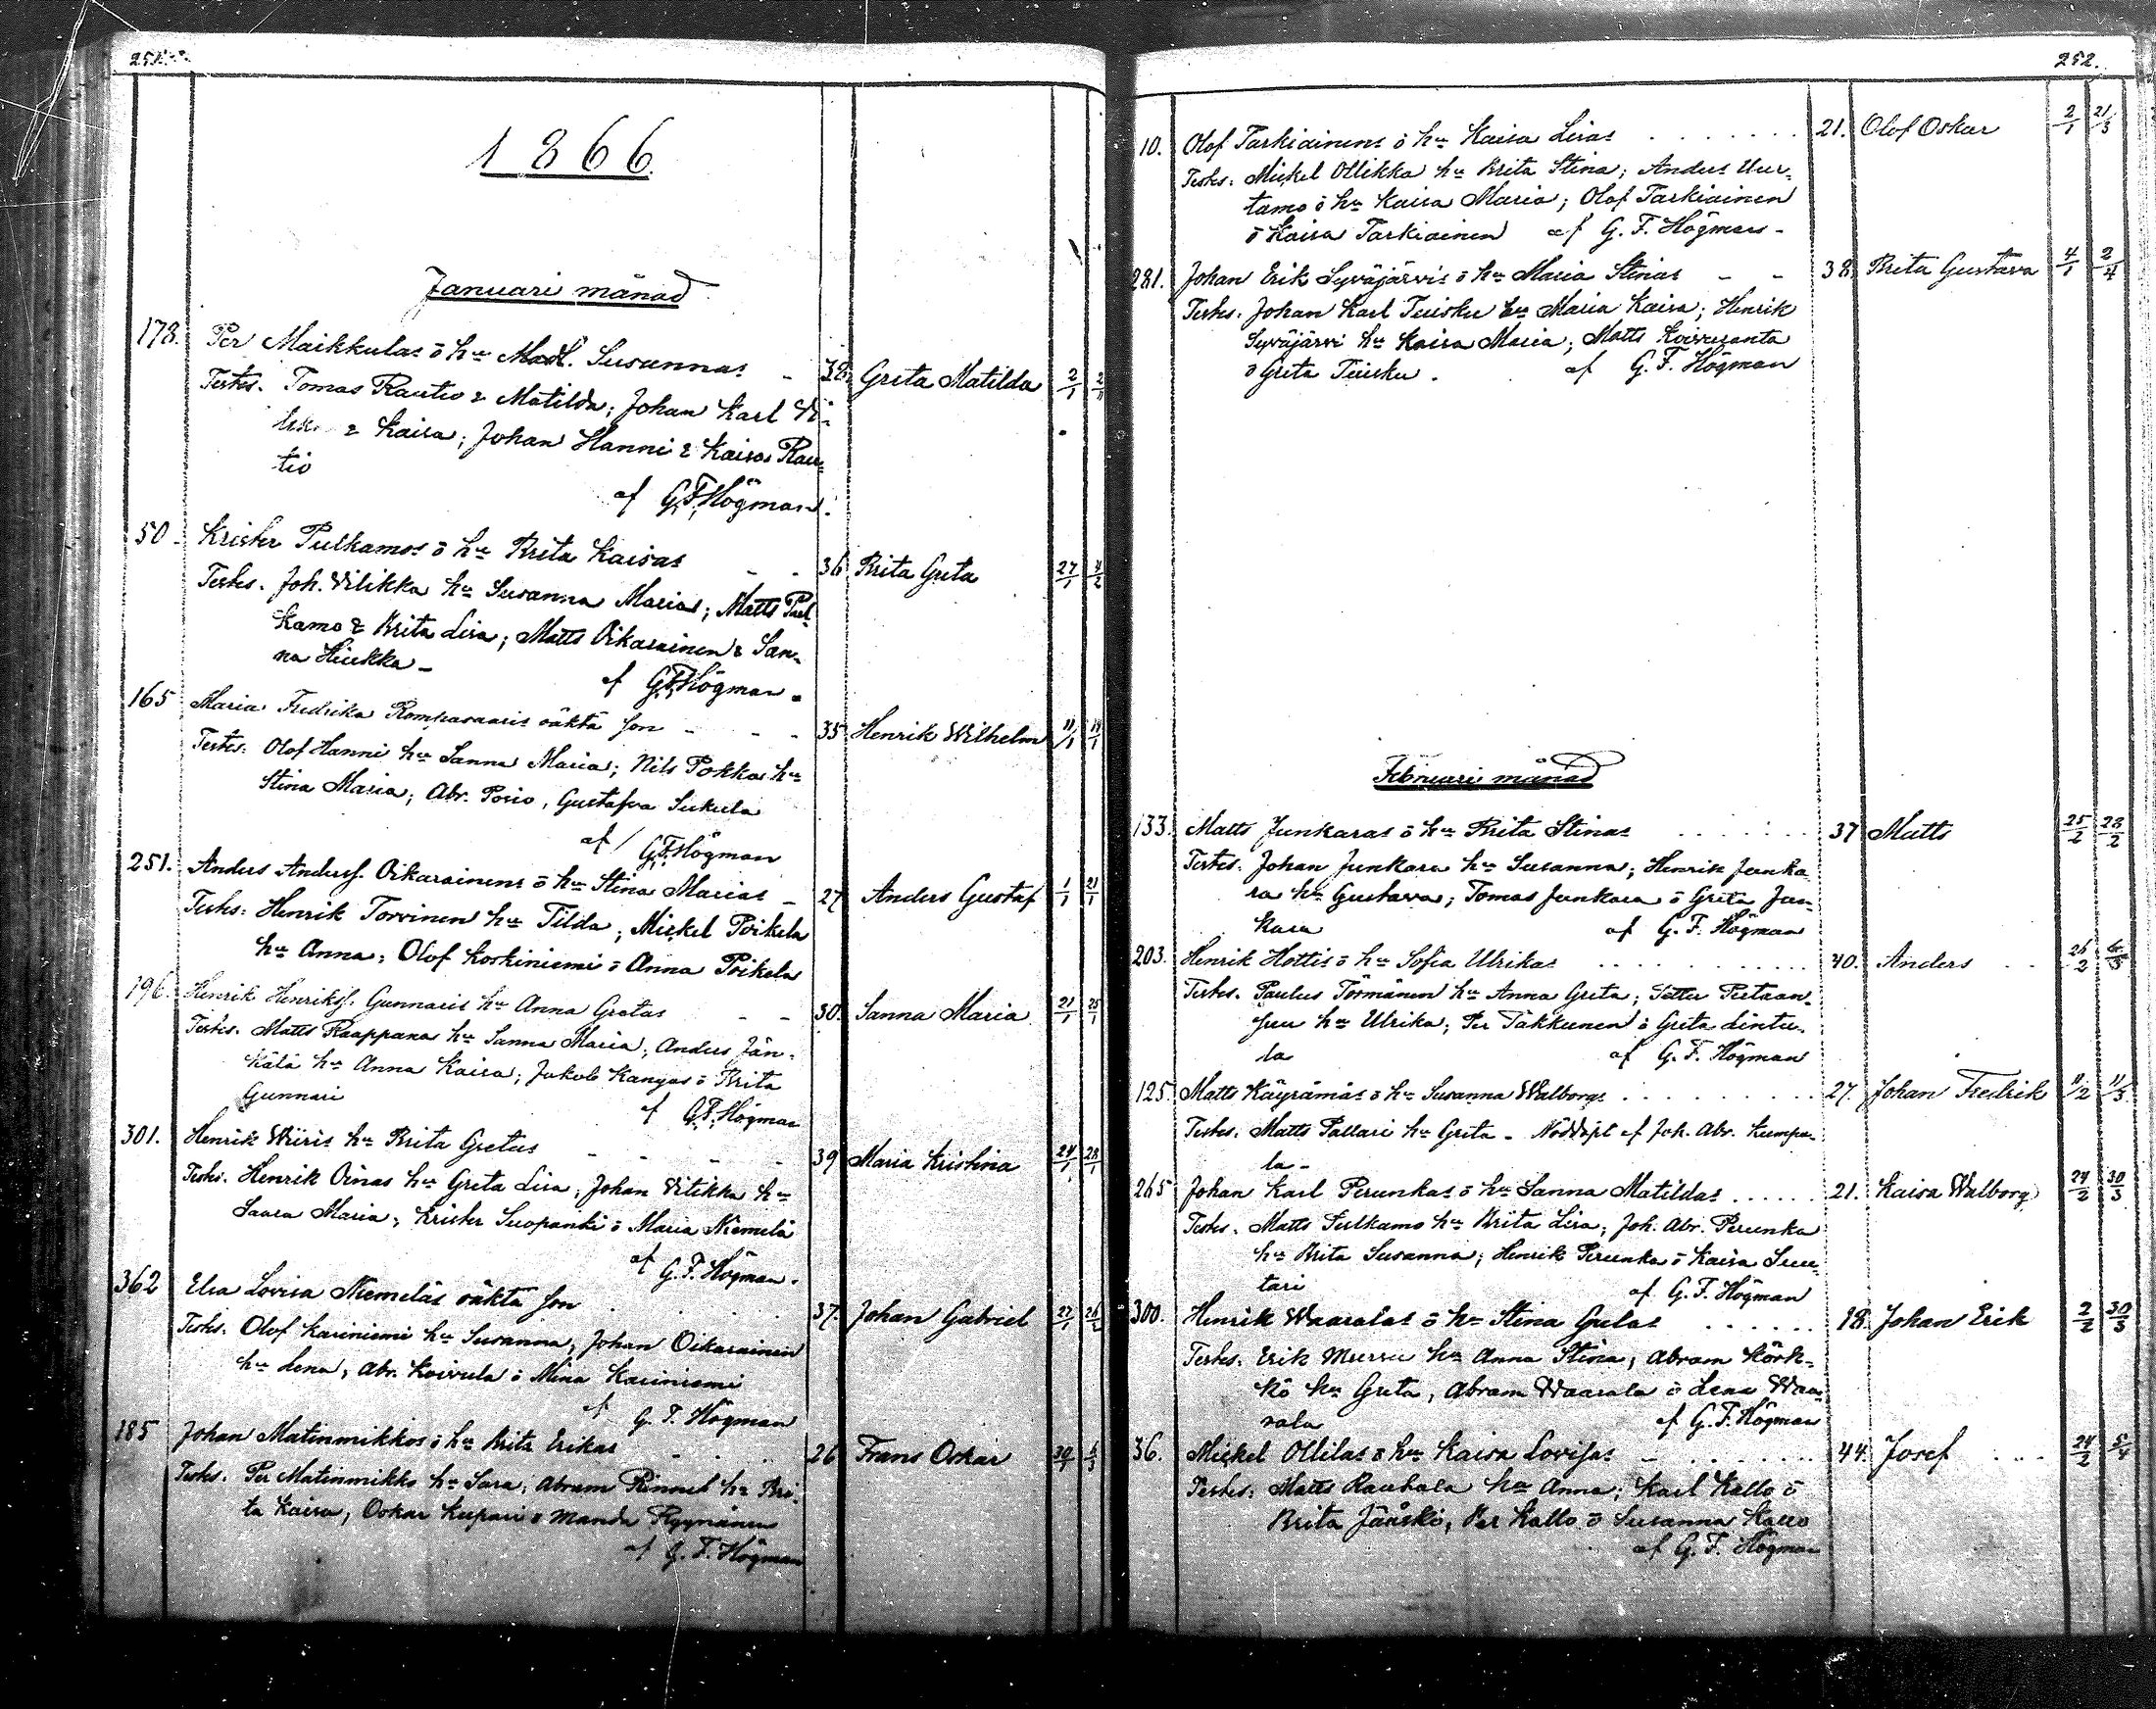 251.
1866.
Januari månad
178. Per Maikkulas o hu Madl. Susannas 38. Greta Matilda 2/1 2/1
Testes. Tomas Rautio & Matilda; Johan Karl
& Kaisa; Johan Hanni & Kaisa Rau-
tio
af G.F. Högman.
50. Krister Pulkamos o hu Brita Kaisas 36 Brita Greta 27/1 4/2
Testes. Joh. Vitikka hu Susanna Maria; Matts Pul-
kamo & Brita Lisa; Matts Oikarainen & San-
na Hiukka
af G.F. Högman.
165 Maria Fredrika Kompasaaris oäkta son 35. Henrik Wilhelm 11/1 19/1
Testes: Olof Hanni hu Sanna Maria; Nils Pokka hu
Stina Maria; Abr. Posio, Gustafva Sukula
af G.F. Högman
251. Anders Andersf. Oikarainens o hu Stina Marias 27 Anders Gustaf 1/1 21/1
Testes: Henrik Torvinen hu Tilda; Mickel Poikela
hu Anna; Olof Koskiniemi o Anna Poikela
196. Henrik Henriksf. Gunnaris hu Anna Gretas 30. Sanna Maria 21/1 25/1
Testes. Matts Raappana hu Sanna Maria; Anders Jän-
kälä hu Anna Kaisa; Jakob Kangas o Brita
Gunnari
af G.F. Högman
301. Henrik Wiiris hu Brita Gretas 39 Maria Kristina 24/1 28/1
Testes. Henrik Oinas hu Greta Lisa; Johan Vitikka hu
Saara Maria; Krister Suopanki o Maria Niemelä
af G.F. Högman.
362 Elsa Lovisa Niemeläs oäkta son 37. Johan Gabriel 27/1 26/2
Testes. Olof Kariniemi hu Susanna; Johan Oikarainen
hu Lena; Abr. Koivula o Mina Kariniemi
af G.F. Högman
185 Johan Matinmikkos o hu Brita Erikas 26 Frans Oskar 30/1
Testes. Per Matinmikko hu Sara; Abram hu Bri-
ta Kaisa, Oskar Kupari o Manda Ryynänen
af G.F. Högman
252.
10. Olof Tarkiainens o hu Kaisa Lisas 21. Olof Oskar 2/1 21/3
Testes: Mickel Ollikka hu Brita Stina; Anders Uur-
tamo o hu Kaisa Maria; Olof Tarkiainen
o Kaisa Tarkiainen af G.F. Högman
281. Johan Erik Syväjärvis o hu Maria Stinas 38. Brita Gustava 4/1 2/4
Testes. Johan Karl Tuisku hu Maria Kaisa; Henrik
Syväjärvi hu Kaisa Maria; Matts Koivuranta
o Greta Tuisku. af G.F. Högman
Februari månad
133. Matts Junkaras o hu Brita Stinas 37 Matts 25/2 28/2
Testes. Johan Junkara hu Susanna; Henrik Junka-
ra hu Gustava; Tomas Junkara o Greta Jun-
kara af G.F. Högman
203. Henrik Hottis o hu Sofia Ulrikas 40. Anders 26/2
Testes. Paulus Törmänen hu Anna Greta; Petter Pietaan-
suu hu Ulrika; Per Takkunen o Greta Lintu-
la af G.F. Högman
125. Matts Käyrämäs o hu Susanna Walborgs 27. Johan Fredrik 11/2 11/3
Testes. Matts Pallari hu Greta - Nöddöpt af Joh. Abr. Kumpu-
la
265 Johan Karl Perunkas o hu Sanna Matildas 21. Kaisa Walborg 24/2 30/3
Testes. Matts Pulkamo hu Brita Lisa; Joh. Abr. Perunka
hu Brita Susanna; Henrik Perunka o Kaisa Suu-
tari af G.F. Högman
300. Henrik Waaralas o hu Stina Gulas 18. Johan Erik 2/2 30/3
Testes: Erik Mursu hu Anna Stina; Abram Körk-
kö hu Greta, Abram Waarala o Lena Waa-
rala af G.F. Högman
36. Mickel Ollilas o hu Kaisa Lovisas 44. Josef 24/2 5/4
Testes: Matts Rauhala hu Anna; Karl Kallo o
Brita Jääskö, Per Kallo o Susanna Kallo
af G.F. Högman